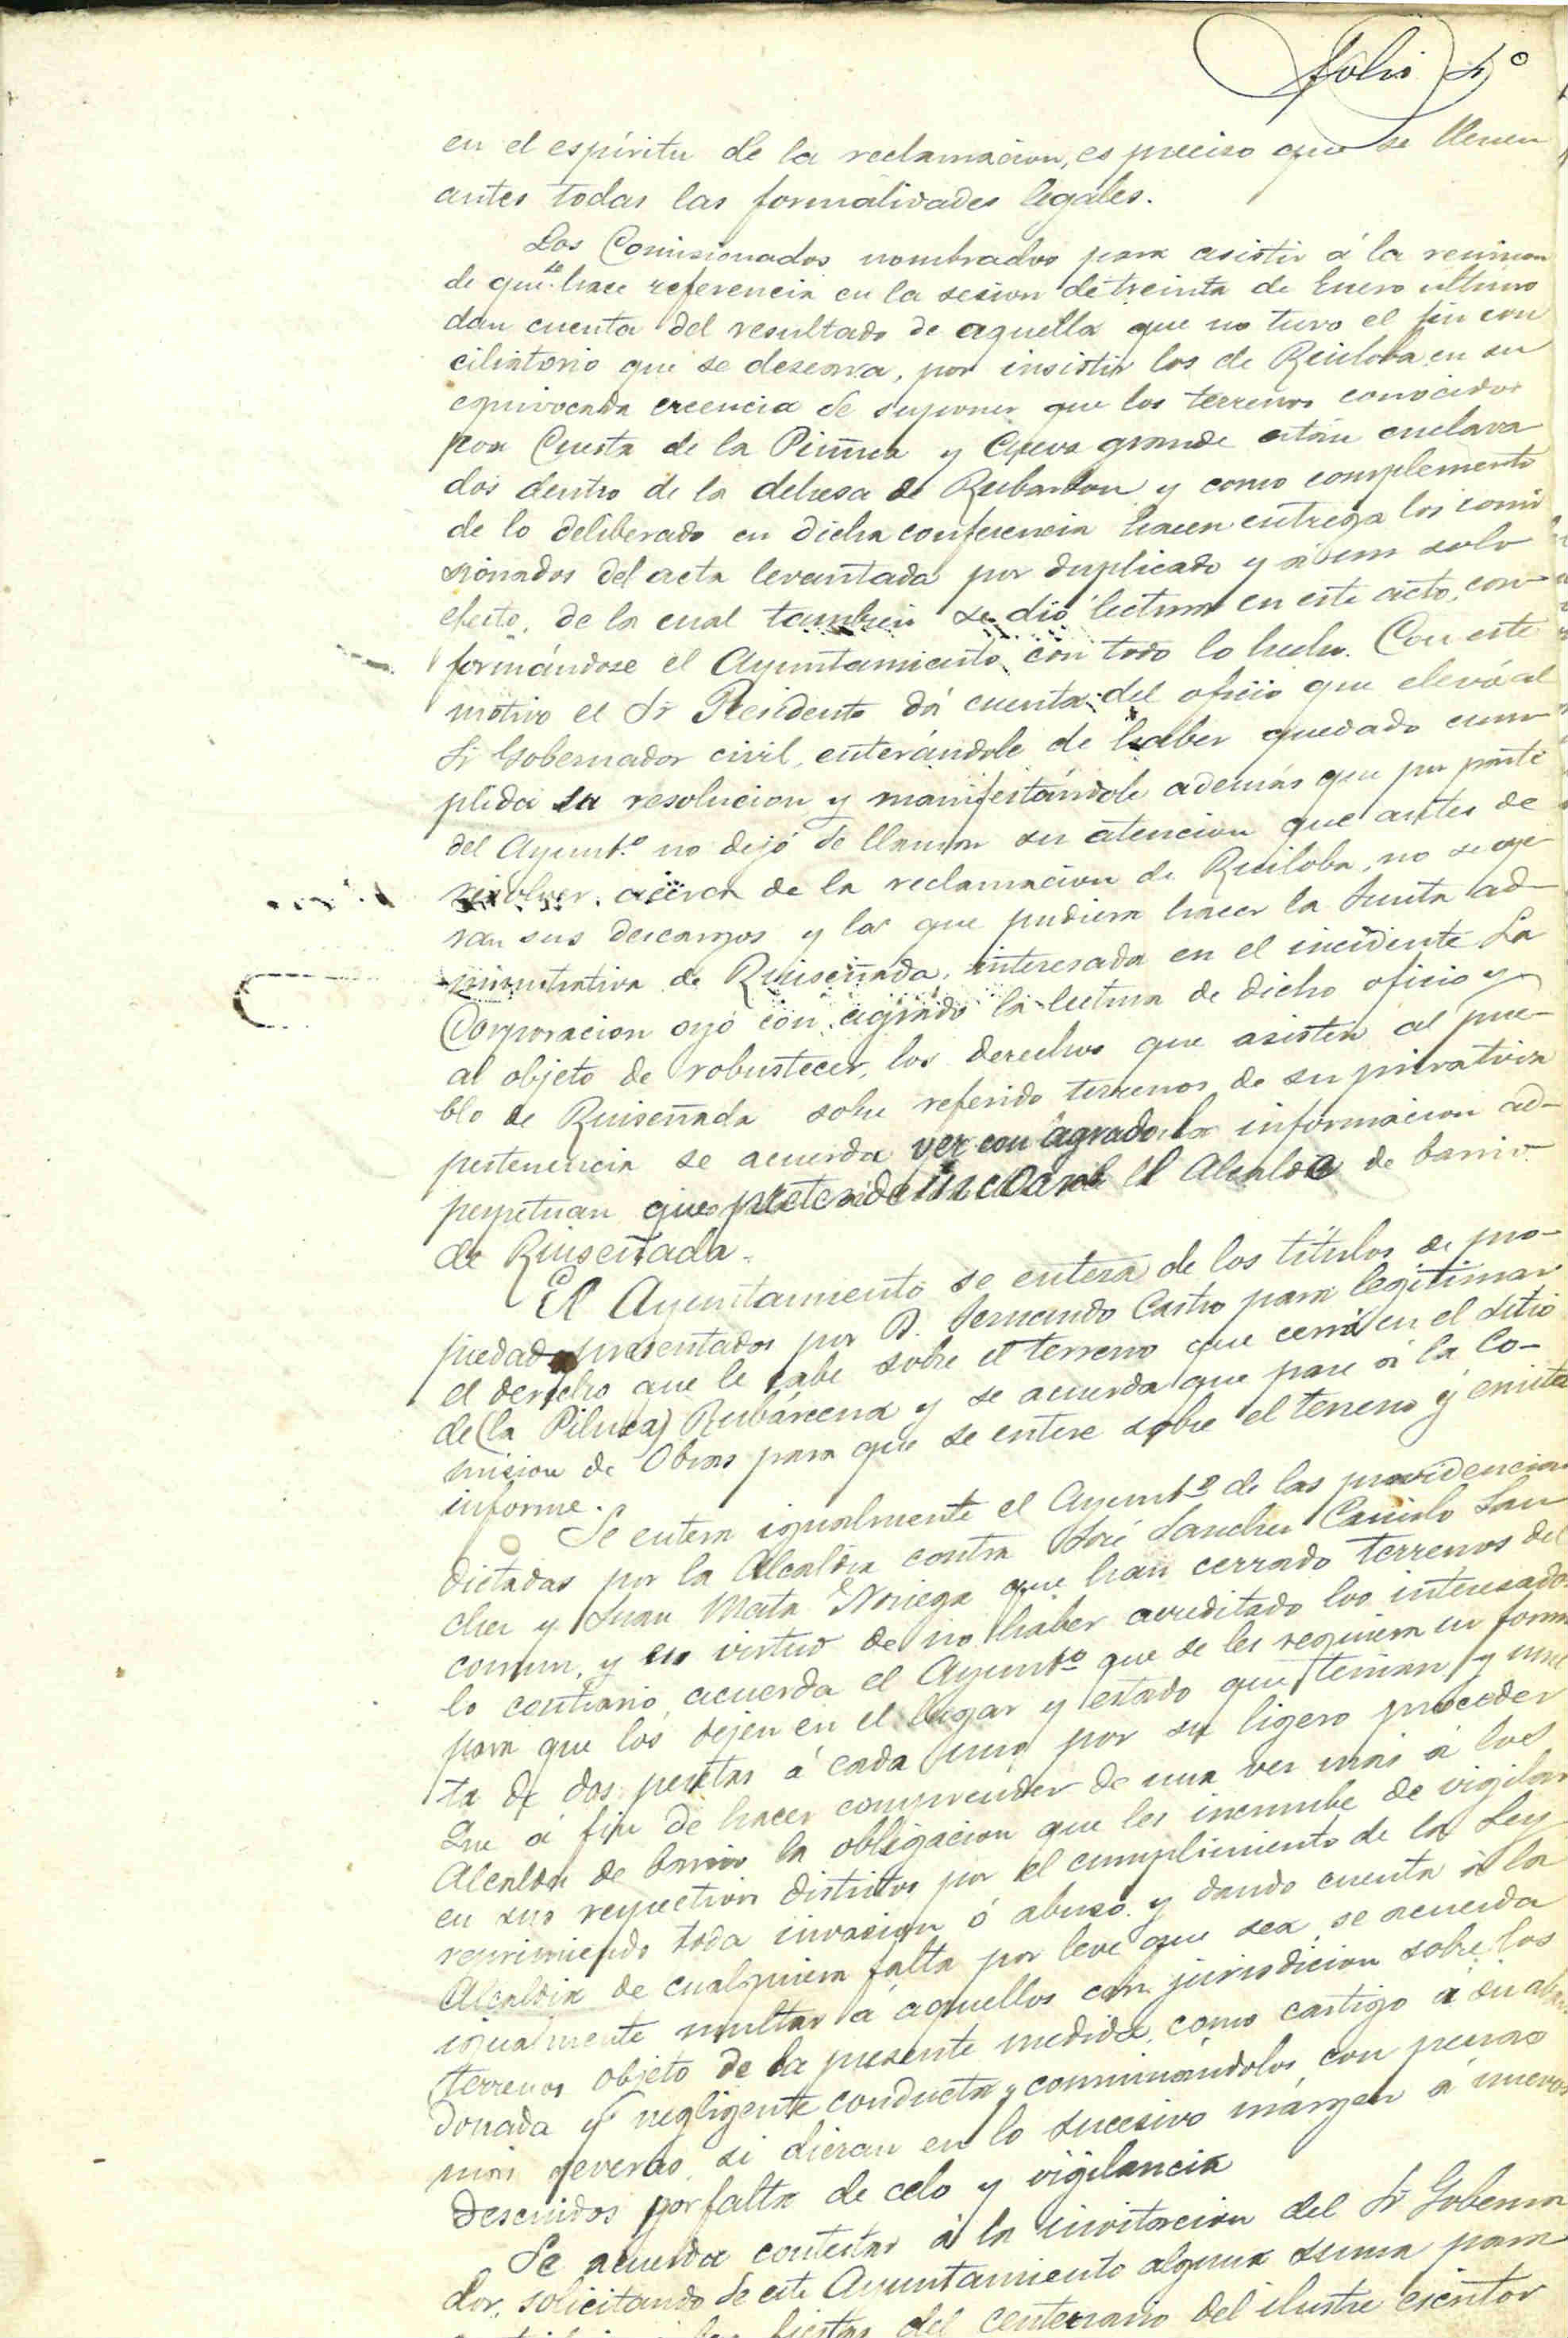 folio 4º
en el espíritu de la reclamacion, es preciso que se llenen
antes todas las formalidades legales.
Los Comisionados nombrados para asistir á la reunion
de que se hace referencia en la sesion de treinta de Enero ultimo
dan cuenta del resultado de aquella que no tuvo el fin con
ciliatorio que se deseava, por insistir los de Ruiloba en su
equivocada creencia de suponer que los terrenos conocidos
por Cuesta de la y Cueva grande están enclava
dos dentro de la dehesa de y como complemento
de lo deliberado en dicha conferencia hacen entrega los comi
sionados del acta levantada por duplicado y á un solo
efecto, de la cual tambien se dió lectura en este acto, con-
formándose el Ayuntamiento con todo lo hecho. Con este
motivo el Sr Presidente dá cuenta del oficio que elevó al
Sr Gobernador civil, enterándole de haber quedado cum-
plida su resolucion y manifestándole además que por parte
del Ayuntº no dejó de llamar su atencion que antes de
resolver acerca de la reclamacion de Ruiloba, no se oye
ran sus descargos y los que pudiera hacer la Junta ad-
ministrativa de Ruiseñada, interesada en el incidente La
Corporacion oyó con agrado la lectura de dicho oficio y
al objeto de robustecer, los derechos que asisten al pue-
blo de Ruiseñada sobre referido terrenos de su privativa
pertenencia se acuerda ver con agrado la informacion ad-
perpetuan que pretende incoar el Alcalde de barrio
de Ruiseñada.
El Ayuntamiento se entera de los titulos de pro-
piedad presentados por D. Fernando Castro para legitimar
el derecho que le cabe sobre el terreno que cerró en el sitio
de (la Piluca) Rubárcena y se acuerda que pase á la Co-
mision de Obras para que se entere sobre el terreno y emita
informe.
Se entera igualmente el Ayuntº de las providencias
dictadas por la Alcaldia contra José Sanchez Canielo San
chez y Juan Mata Noriega que han cerrado terrenos del
comun, y en virtud de no haber acreditado los interesados
lo contrario, acuerda el Ayuntº que se les requiera en forma
para que los dejen en el lugar y estado que tenian y mul
ta de dos pesetas á cada uno por su ligero proceder
Que á fin de hacer comprender de una vez mas á los
Alcaldes de barrio la obligacion que les incumbe de vigilar
en sus respectivos distritos por el cumplimiento de la Ley
reprimiendo toda invasion ó abuso y dando cuenta á la
Alcaldia de cualquiera falta por leve que sea, se acuerda
igualmente multar á aquellos con jurisdicion sobre los
terrenos objeto de la presente medida, como castigo á su aban
donada y negligente conducta y conminándolos con penas
mas severas, si dieran en lo sucesivo márgen á nuevos
descuidos por falta de celo y vigilancia
Se acuerda contestar á la invitacion del Sr Goberna
dor, solicitando de este Ayuntamiento alguna suma para
fiestas del centenario del ilustre escritor